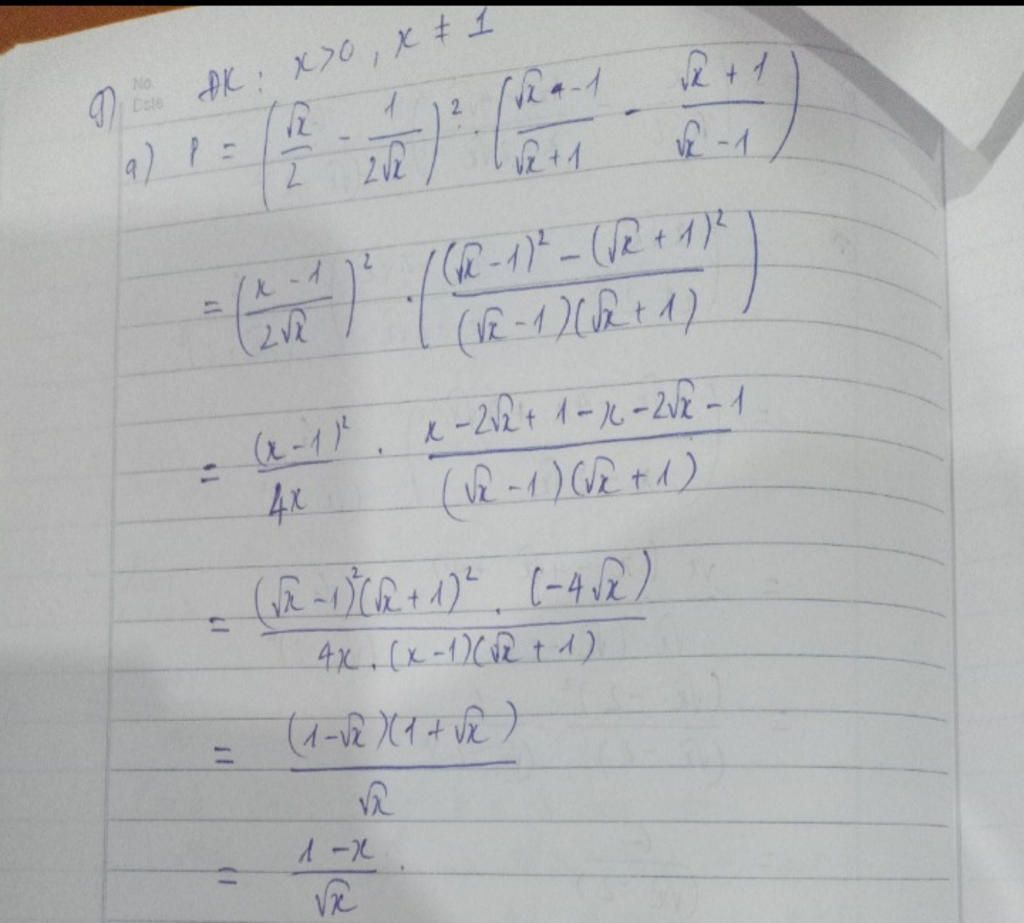 No.
Date
g) ĐK: x>0, x ≠ 1
a) P = (√x/2 - 1/(2√x))² · ((√x - 1)/(√x + 1) - (√x + 1)/(√x - 1))
= ((x - 1)/(2√x))² · (((√x - 1)² - (√x + 1)²)/((√x - 1)(√x + 1)))
= (x - 1)²/(4x) · (x - 2√x + 1 - x - 2√x - 1)/((√x - 1)(√x + 1))
= ((√x - 1)²(√x + 1)² . (-4√x))/(4x . (x - 1)(√x + 1))
= ((1 - √x)(1 + √x))/√x
= (1 - x)/√x .